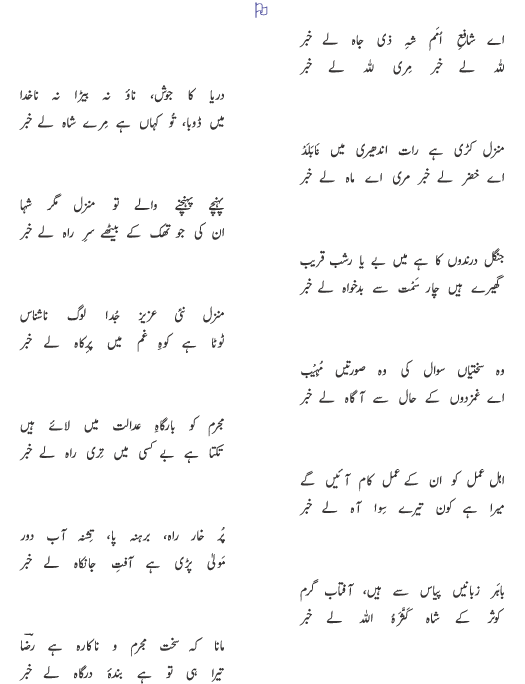 اے شافعِ اُمَم شہِ ذی جاہ لے خبر
للہ لے خبر مِری للہ لے خبر
دریا کا جوش، ناؤ نہ بیڑا نہ ناخدا
میں ڈوبا، تُو کہاں ہے مِرے شاہ لے خبر
منزل کڑی ہے رات اندھیری میں نَابَلَدْ
اے خضر لے خبر مری اے ماہ لے خبر
پہنچے پہنچنے والے تو منزل مگر شہا
ان کی جو تھک کے بیٹھے سرِ راہ لے خبر
جنگل درندوں کا ہے میں بے یار شب قریب
گھیرے ہیں چار سَمْت سے بدخواہ لے خبر
منزل نئی عزیز جُدا لوگ ناشناس
ٹوٹا ہے کوہِ غم میں پرِکاہ لے خبر
وہ سختیاں سوال کی وہ صورتیں مُہِیْب
اے غمزدوں کے حال سے آگاہ لے خبر
مجرم کو بارگاہِ عدالت میں لائے ہیں
تکتا ہے بے کسی میں تِری راہ لے خبر
اہلِ عمل کو ان کے عمل کام آئیں گے
میرا ہے کون تیرے سِوا آہ لے خبر
پُر خار راہ، برہنہ پا، تِشنہ آب دور
مَولیٰ پڑی ہے آفتِ جانکاہ لے خبر
باہَر زبانیں پیاس سے ہیں، آفتاب گرم
کوثر کے شاہ کَثَّرَہُ اللہ لے خبر
مانا کہ سخت مجرم و ناکارہ ہے رضاؔ
تیرا ہی تو ہے بندۂ درگاہ لے خبر